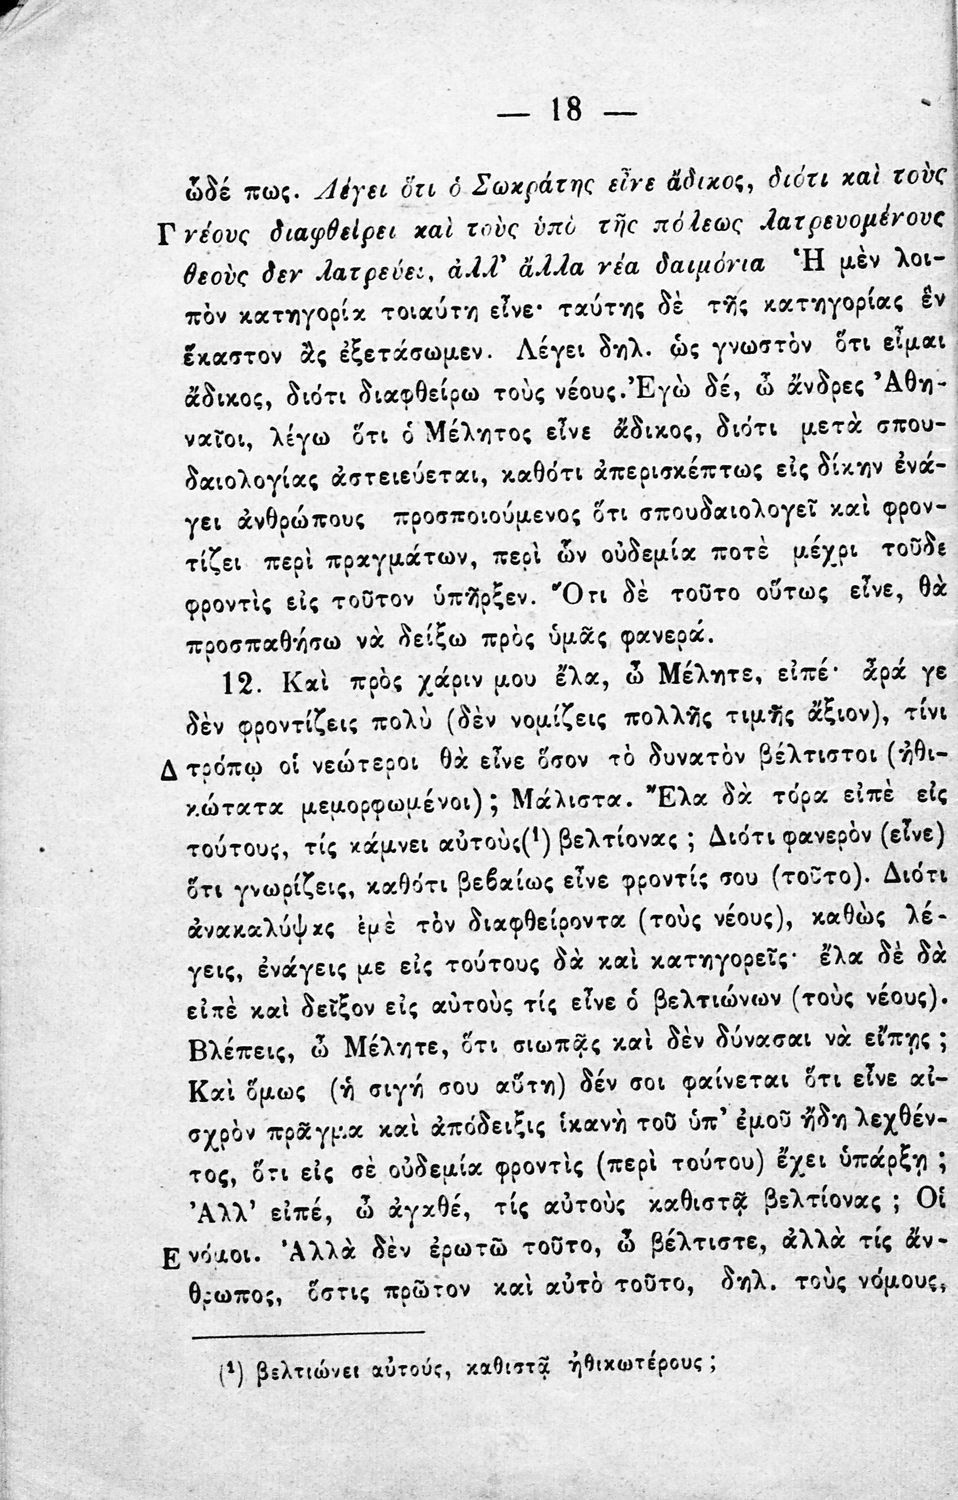 — 18 —
ὧδέ πως. Λέγει ὅτι ὁ Σωκράτης εἶνε ἄδικος, διότι καὶ τοὺς
Γ νέους διαφθείρει καὶ τοὺς ὑπὸ τῆς πόλεως λατρευομένους
θεοὺς δεν λατρεύει, ἀλλ' ἄλλα νέα δαιμόνια Ἡ μὲν λοι-
πὸν κατηγορία τοιαύτη εἶνε· ταύτης δὲ τῆς κατηγορίας ἓν
ἕκαστον ἂς ἐξετάσωμεν. Λέγει δηλ. ὡς γνωστὸν ὅτι εἶμαι
ἄδικος, διότι διαφθείρω τοὺς νέους. Ἐγὼ δέ, ὦ ἄνδρες Ἀθη-
ναῖοι, λέγω ὅτι ὁ Μέλητος εἶνε ἄδικος, διότι μετὰ σπου-
δαιολογίας ἀστειεύεται, καθότι ἀπερισκέπτως εἰς δίκην ἐνά-
γει ἀνθρώπους προσποιούμενος ὅτι σπουδαιολογεῖ καὶ φρον-
τίζει περὶ πραγμάτων, περὶ ὧν οὐδεμία ποτὲ μέχρι τοῦδε
φροντὶς εἰς τοῦτον ὑπῆρξεν. Ὅτι δὲ τοῦτο οὕτως εἶνε, θὰ
προσπαθήσω νὰ δείξω πρὸς ὑμᾶς φανερά.
12. Καὶ πρὸς χάριν μου ἔλα, ὦ Μέλητε, εἰπέ· ἆρά γε
δὲν φροντίζεις πολὺ (δὲν νομίζεις πολλῆς τιμῆς ἄξιον), τίνι
Δ τρόπῳ οἱ νεώτεροι θὰ εἶνε ὅσον τὸ δυνατὸν βέλτιστοι (ἠθι-
κώτατα μεμορφωμένοι); Μάλιστα. Ἔλα δὰ τόρα εἰπὲ εἰς
τούτους, τίς κάμνει αὐτοὺς(¹) βελτίονας ; Διότι φανερὸν (εἶνε)
ὅτι γνωρίζεις, καθότι βεβαίως εἶνε φροντίς σου (τοῦτο). Διότι
ἀνακαλύψας ἐμὲ τὸν διαφθείροντα (τοὺς νέους), καθὼς λέ-
γεις, ἐνάγεις με εἰς τούτους δὰ καὶ κατηγορεῖς· ἔλα δὲ δὰ
εἰπὲ καὶ δεῖξον εἰς αὐτοὺς τίς εἶνε ὁ βελτιώνων (τοὺς νέους).
Βλέπεις, ὦ Μέλητε, ὅτι σιωπᾷς καὶ δὲν δύνασαι νὰ εἴπῃς ;
Καὶ ὅμως (ἡ σιγή σου αὕτη) δέν σοι φαίνεται ὅτι εἶνε αἰ-
σχρὸν πρᾶγμα καὶ ἀπόδειξις ἱκανὴ τοῦ ὑπ' ἐμοῦ ἤδη λεχθέν-
τος, ὅτι εἰς σὲ οὐδεμία φροντὶς (περὶ τούτου) ἔχει ὑπάρξῃ ;
Ἀλλ' εἰπέ, ὦ ἀγαθέ, τίς αὐτοὺς καθιστᾷ βελτίονας ; Οἱ
Ε νόμοι. Ἀλλὰ δὲν ἐρωτῶ τοῦτο, ὦ βέλτιστε, ἀλλὰ τίς ἄν-
θρωπος, ὅστις πρῶτον καὶ αὐτὸ τοῦτο, δηλ. τοὺς νόμους,
(¹) βελτιώνει αὐτούς, καθιστᾷ ἠθικωτέρους ;